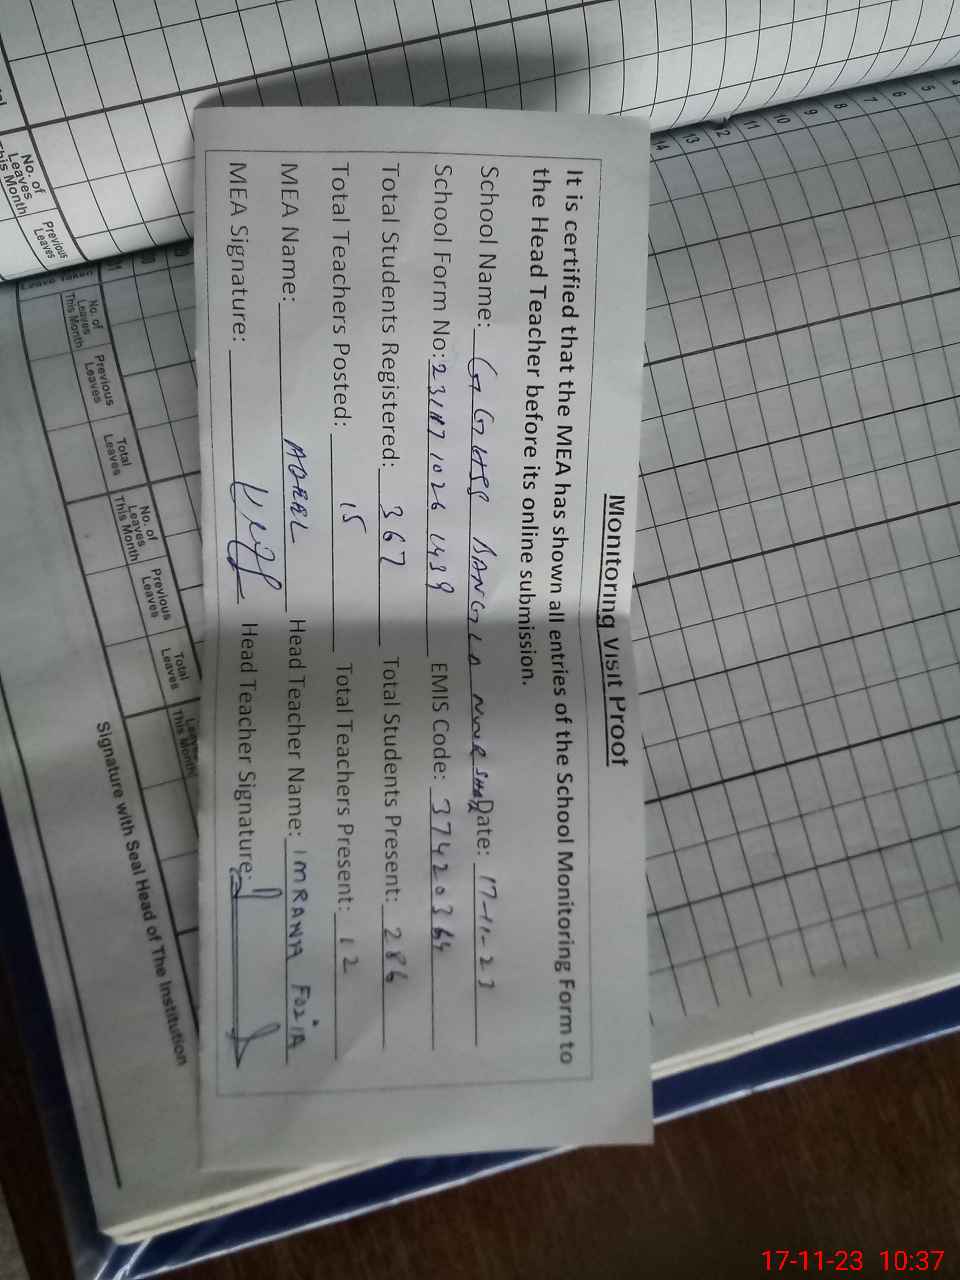 Monitoring Visit Proof
It is certified that the MEA has shown all entries of the School Monitoring Form to
the Head Teacher before its online submission.
School Name: GGHSS BANGLA NOOR SHAH Date: 17-11-23
School Form No: EMIS Code: 37420364
Total Students Registered: 367 Total Students Present: 286
Total Teachers Posted: 15 Total Teachers Present: 12
MEA Name: Head Teacher Name: IMRANA FOZIA
MEA Signature: Head Teacher Signature:
14 13 12 11 10 9 8 7 6 5
No. of Leaves This Month
Previous Leaves
No. of Leaves This Month
Previous Leaves
Total Leaves
No. of Leaves This Month
Previous Leaves
Total Leaves
This Month
Signature with Seal Head of The Institution
17-11-23 10:37